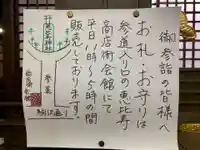 御参詣の皆様へ
お札・お守りは
参道入り口の恵比寿
商店街会館にて
平日11〜5時の間
販売しております。
参道